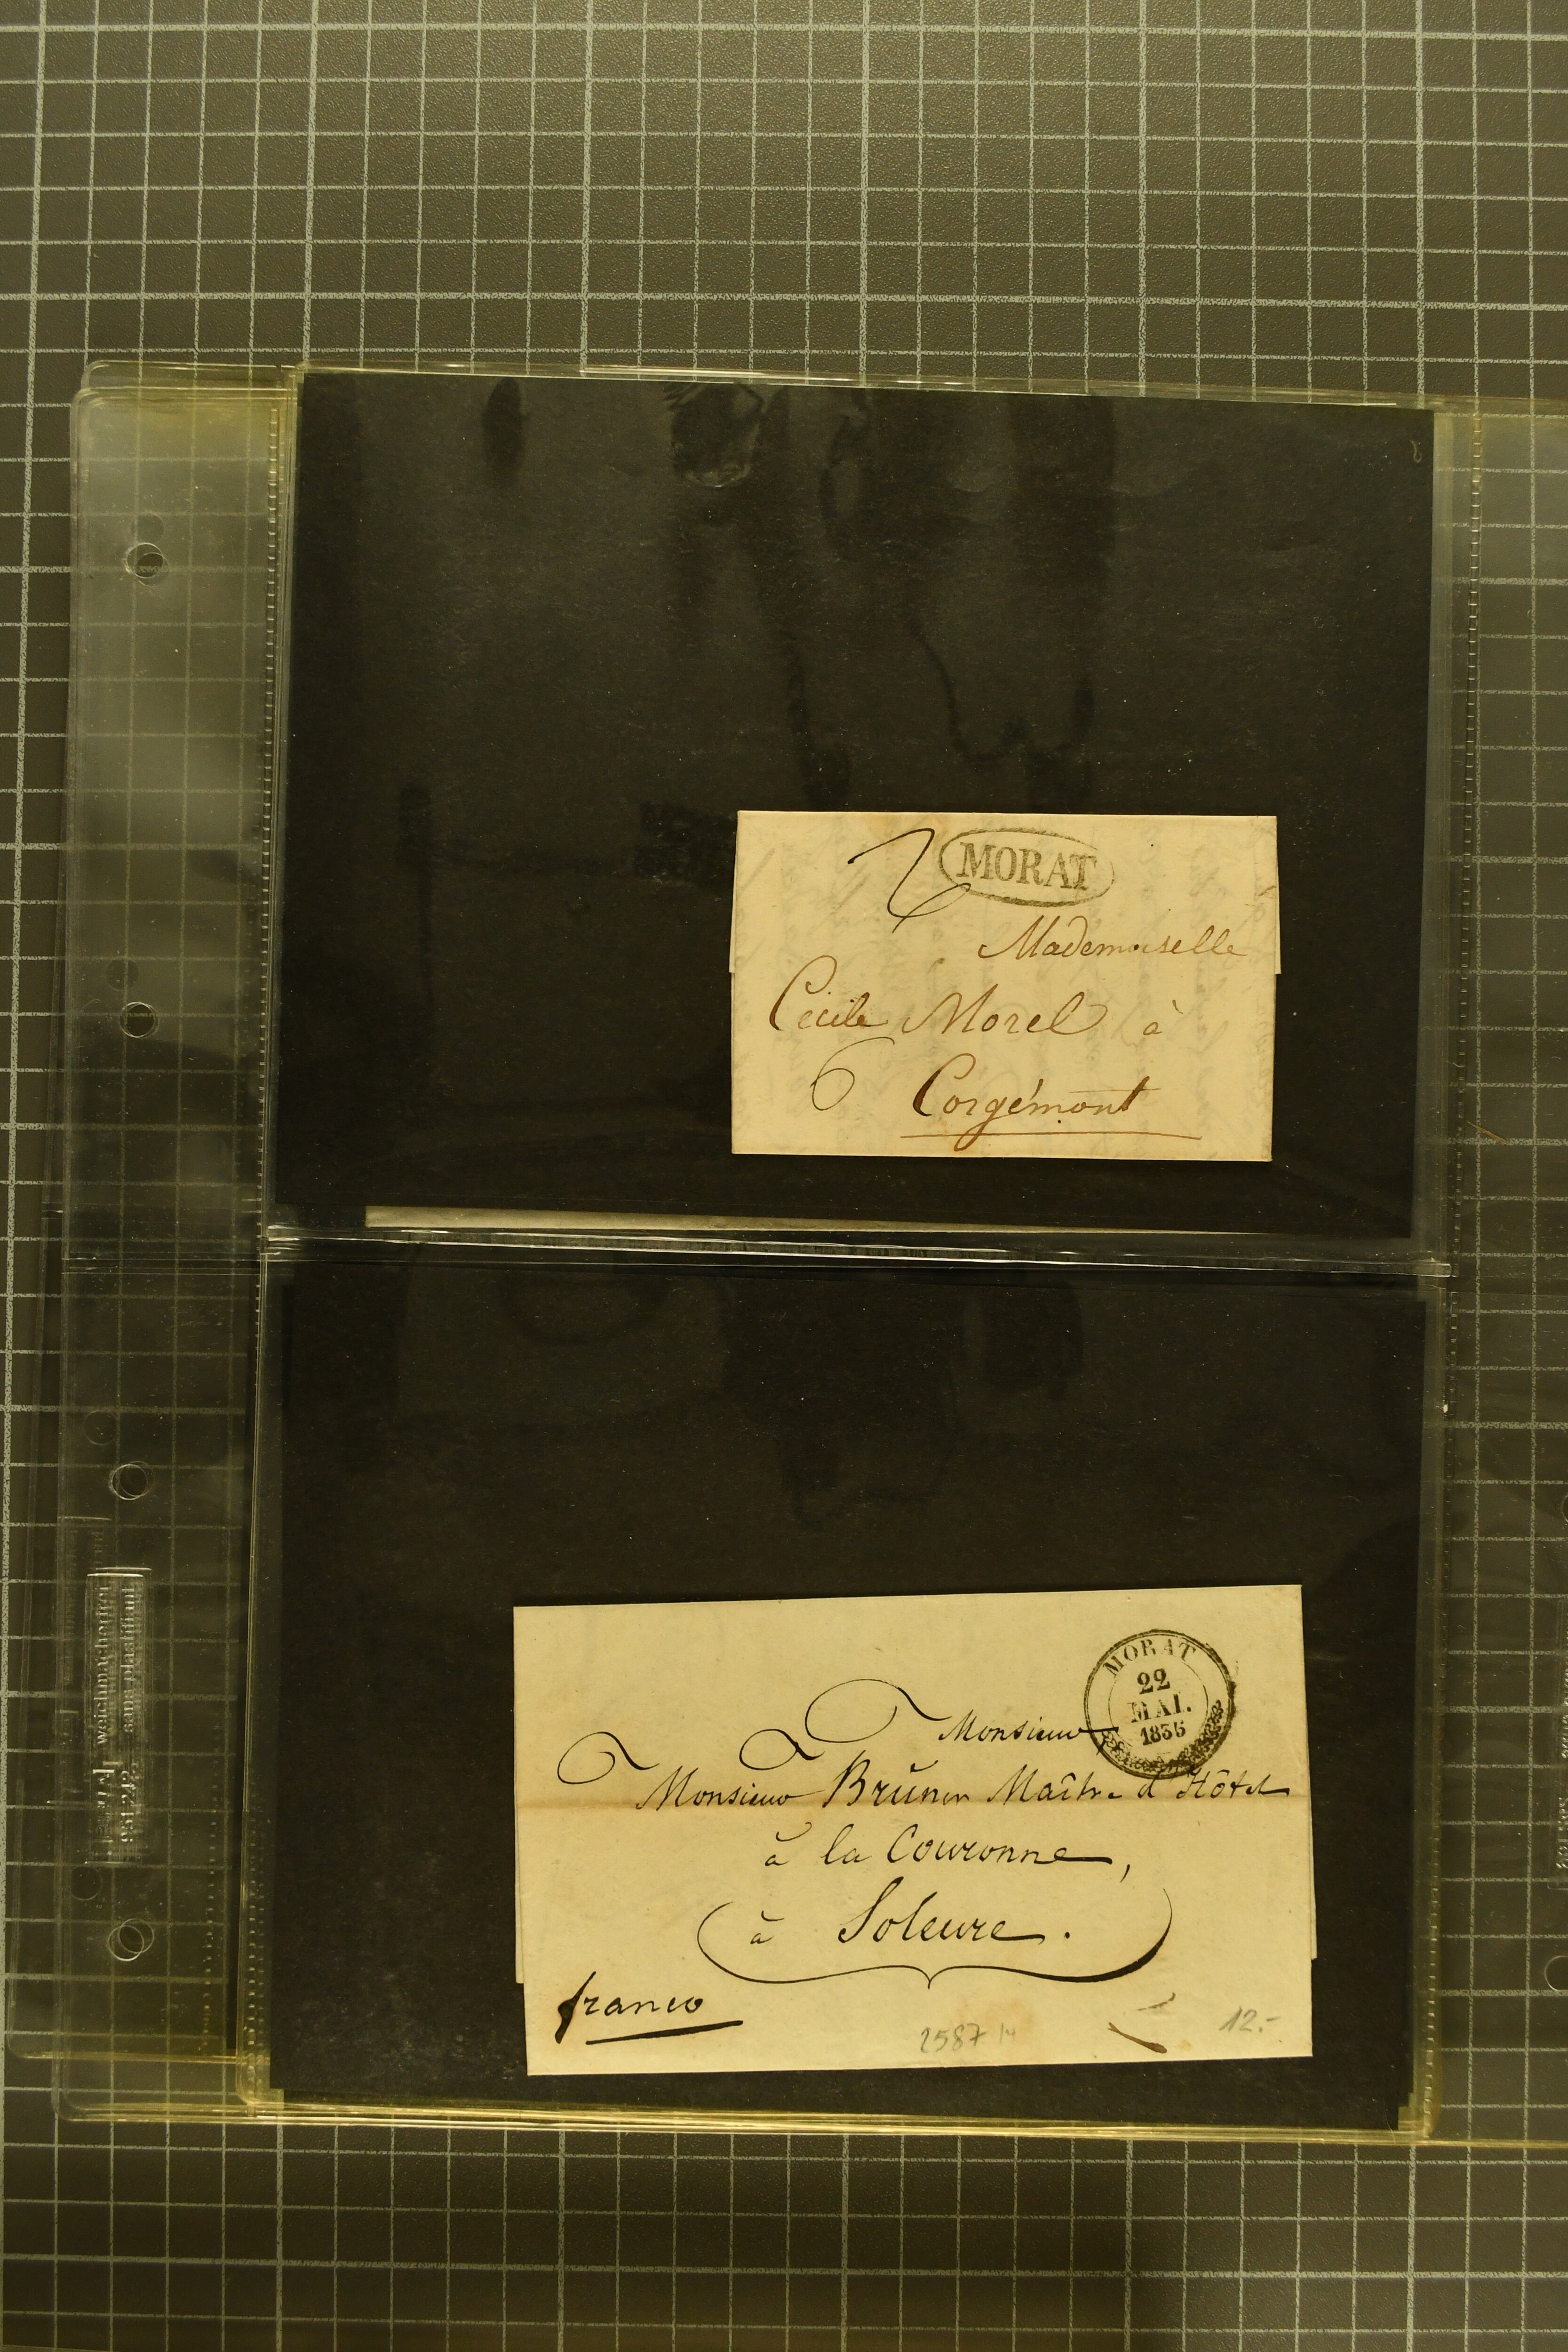 MORAT
Mademoiselle
Cécile Morel à
6 Corgémont
MORAT
22
MAI.
1835
Monsieur
Monsieur Brŭner Maître d'Hôtel
à la Couronne,
à Soleure.
franco
2587
12.-
weichmacherfrei
sans plastifiant